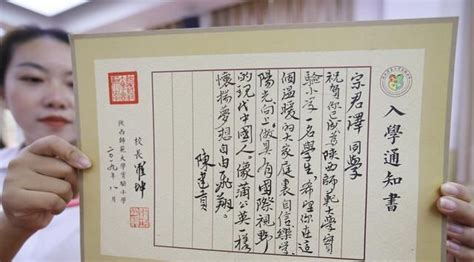 入學通知書
宗君澤同學
祝賀你已成爲陝西師範大學實
驗小學一名學生希望你在這
個溫暖的大家庭裏自信樂学
陽光向上做具有國際視野
的現代中國人。像蒲公英一樣
懷揣夢想自由飛翔。
陳建貢
校長
陝西師範大學實驗小學
二〇一九年八月